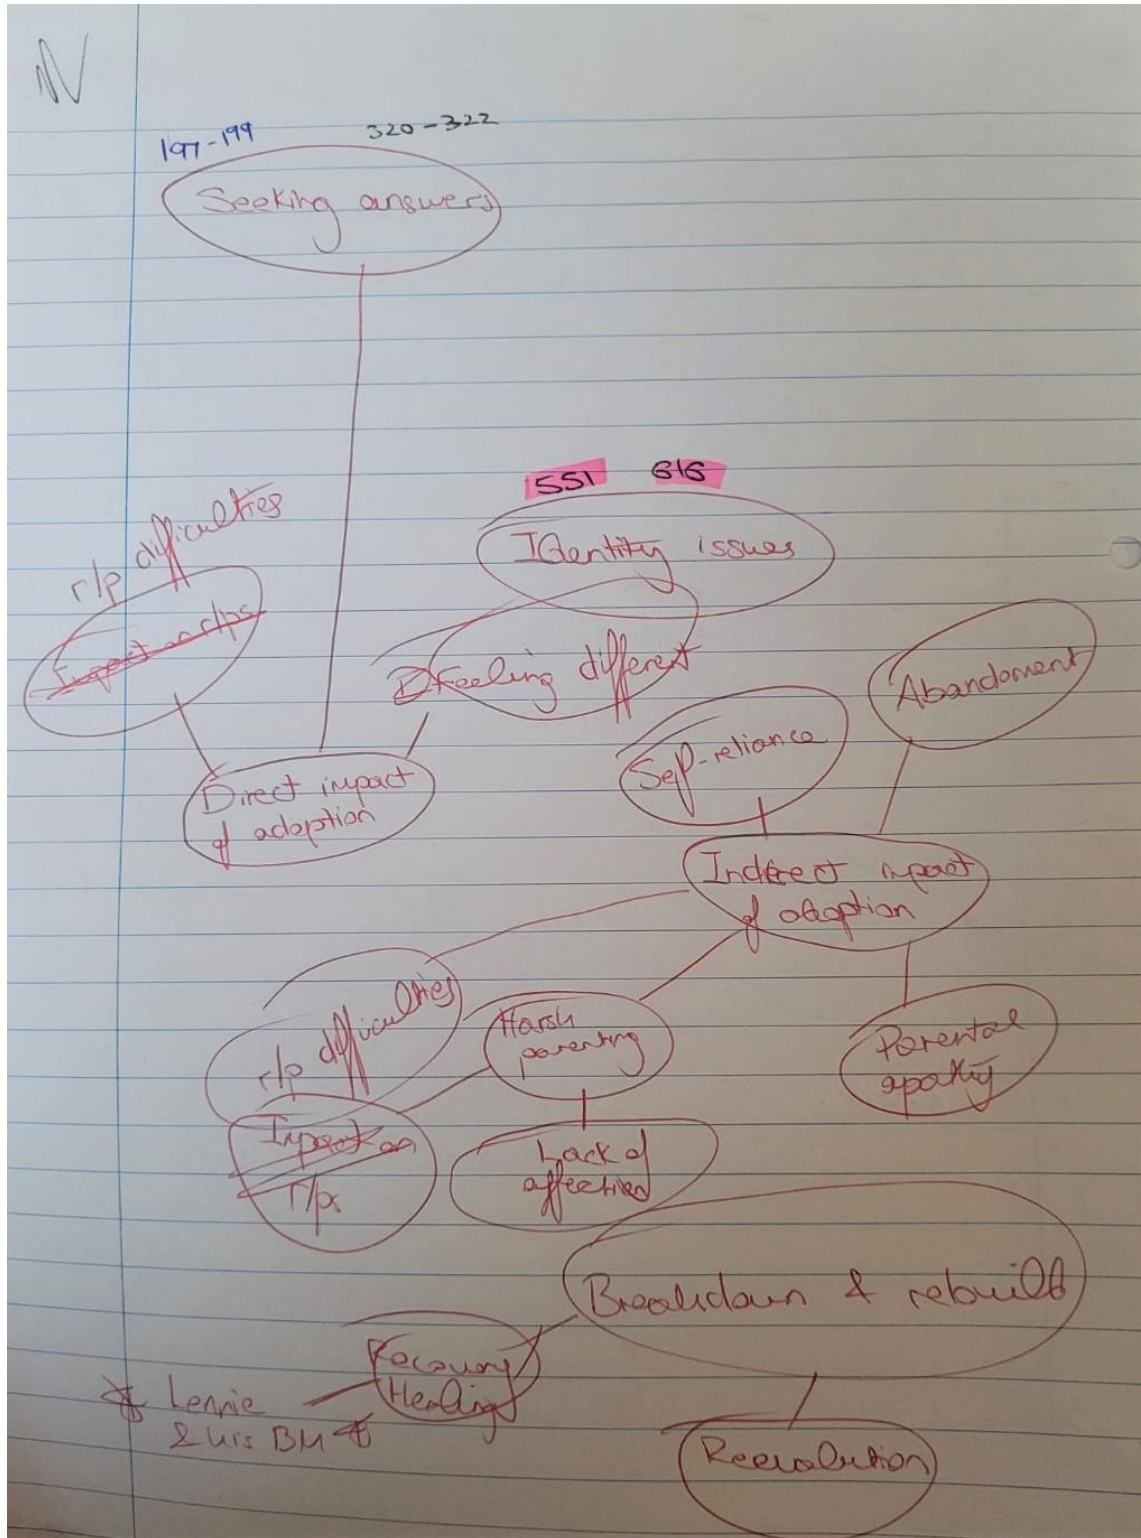 197-199 320-322
Seeking answers
551 616
Identity issues
r/p difficulties
Impact on r/ps
Feeling different
Abandoment
Self-reliance
Direct impact
of adoption
Indirect impact
of adoption
r/p difficulties
Harsh
parenting
Parental
apathy
Impact on
r/ps
Lack of
affection
Breakdown & rebuild
Recovery
Healing
Lennie
& his BM
Reevalution